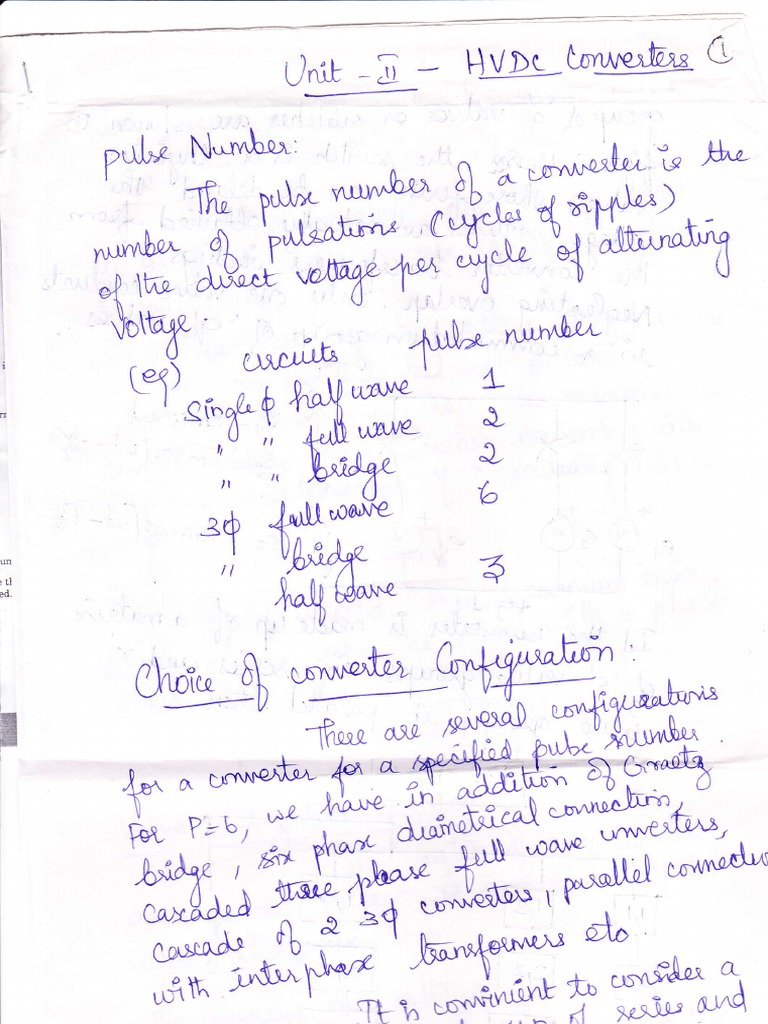 Unit - II - HVDC Converters 1
pulse Number:
The pulse number of a converter is the
number of pulsations (cycles of ripples)
of the direct voltage per cycle of alternating
voltage.
(eg) circuits pulse number
Single ϕ half wave 1
" " full wave 2
" " bridge 2
3ϕ full wave 6
" bridge
half wave 3
Choice of converter Configuration:
There are several configurations
for a converter for a specified pulse number.
For P=6, we have in addition of Graetz
bridge, six phase diametrical connection,
cascaded three phase full wave
cascade of 2 3ϕ converters, parallel
with interphase transformers etc.
It is convinient to consider a
of series and